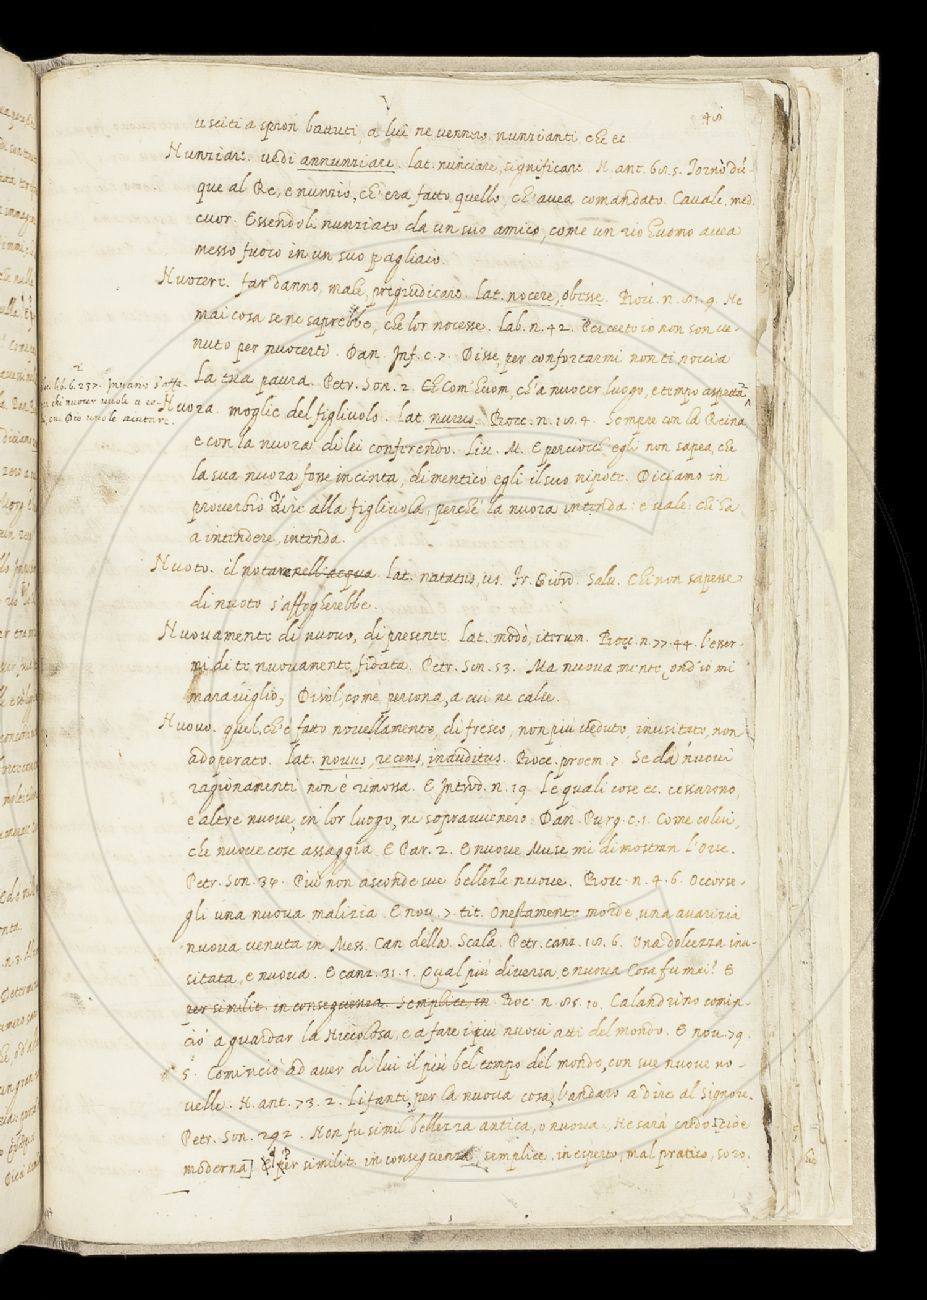 48
usciti a spron battuti, a lui ne vennero nunzianti che ec
Nunziare. vedi annunziare. lat. nunciare, significare. N. ant. 68. 5. Tornò dũ-
que al Re, e nunziò, ch'era fatto quello, ch'avea comandato. Cavalc. med.
cuor. Essendoli nunziato da un suo amico, come un rio huomo avea
messo fuoco in un suo pagliaio.
Nuocere. far danno, male, pregiudicare. lat. nocere, obesse. Bocc. n. 81. 9. Ne
mai cosa se ne saprebbe, che lor nocesse. Lab. n. 42. Percerto io non son ve-
nuto per nuocerti. Dan. Inf. c. 7. Disse, per confortarmi non ti noccia
La tua paura. Petr. Son. 2. Che com' huom, ch'a nuocer luogo, e tempo aspetta
lib. 6. 237. Invano s'affa-
chi nuocer vuole a co-
Dio vuole aiutare.
Nuora. moglie del figliuolo. lat. nurus. Bocc. n. 18. 4. Sempre con la Reina,
e con la nuora di lei conferendo. Liv. M. E perciocchè egli non sapea, che
la sua nuora fosse incinta, dimenticò egli il suo nipote. Diciamo in
proverbio Dire alla figliuola, perchè la nuora intenda: e vale: Chi ha
a intendere, intenda.
Nuoto. il notare nell'acqua. lat. natatus, us. Fr. Giord. Salv. Chi non sapesse
di nuoto s'affogherebbe.
Nuovamente di nuovo, di presente. lat. modò, iterum. Bocc. n. 77. 44. l'esser-
mi di te nuovamente fidata. Petr. Son. 53. Ma nuova mente, ond'io mi
maraviglio, Diròl, come persona, a cui ne calse.
Nuovo. quel, ch'è fatto novellamente, di fresco, non più veduto, inusitato, non
adoperato. lat. novus, recens, inauditus. Bocc. proem. 7 Se da nuovi
ragionamenti non è rimossa. E Introd. n. 19. Le quali cose ec. cessarono,
e altre nuove, in lor luogo, ne sopravvenero. Dan. Purg. c. 1. Come colui,
che nuove cose assaggia. E Par. 2. E nuove Muse mi dimostran l'Orse.
Petr. Son. 37. Può non asconde sue bellezze nuove. Bocc. n. 4. 6. Occorse-
gli una nuova malizia. E nov. 7. tit. Onestamente morde, una avarizia
nuova venuta in Mess. Can della Scala. Petr. canz. 18. 6. Una dolcezza inu-
sitata, e nuova. E canz. 31. 1. Qual più diversa, e nuova Cosa fu mai? E
per similit. in conseguenza. Semplice, in Boc. n. 85. 10. Calandrino comin-
ciò a guardar la Niccolosa, e a fare i più nuovi atti del mondo. E nov. 79.
5. Cominciò ad aver di lui il più bel tempo del mondo, con sue nuove no-
velle. N. ant. 73. 2. Li fanti, per la nuova cosa, l'andaro a dire al Signore.
Petr. Son. 292. Non fu simil bellezza antica, o nuova, Ne sarà credo [cioè
moderna] E per similit. in conseguenza semplice, inesperto, mal pratico, sozo.